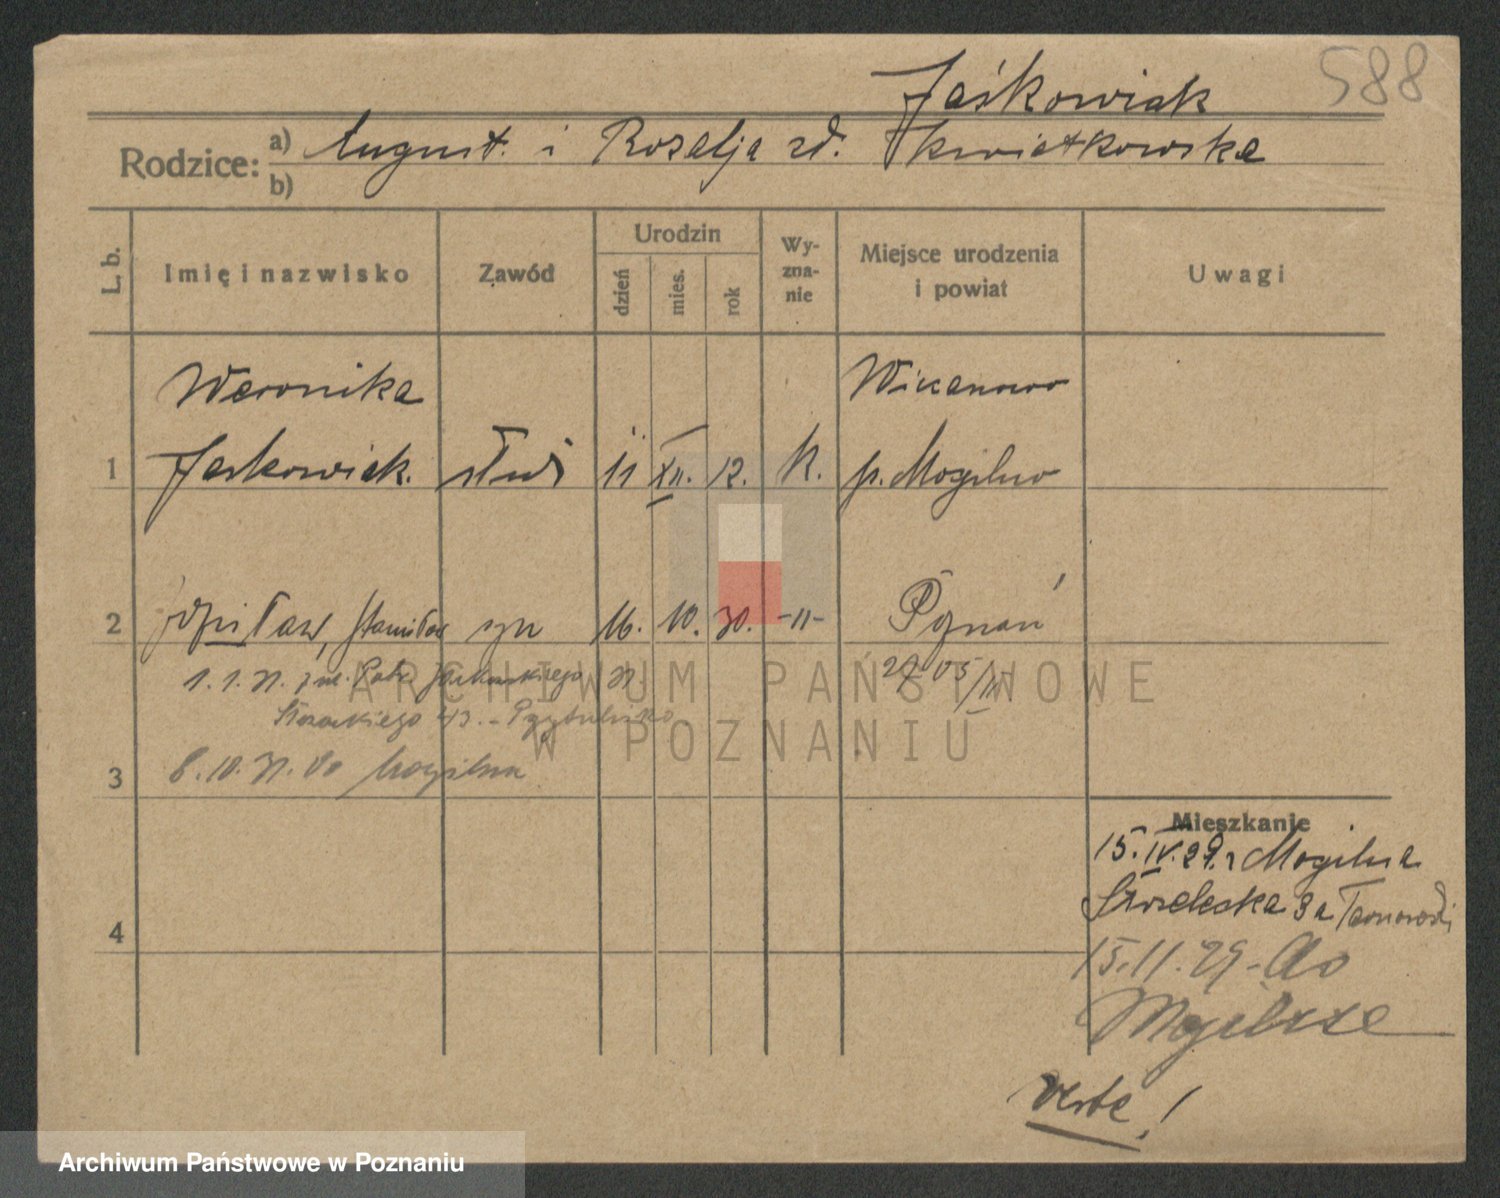 588
Jaśkowiak
Rodzice: a) August. i Rozalja zd. Kwiatkowska
b)
L. b. Imię i nazwisko Zawód Urodzin dzień mies. rok Wy-zna-nie Miejsce urodzenia i powiat Uwagi
Weronika Wiecanowo
1 Jaskowiak. służ 11 XII. 12. k. p. Mogilno
2 Zdzisław, Stanisław syn 16. 10. 30. -II- Poznań
1. 1. 31.
43.
3 8. 10. 31. do Mogilna
Mieszkanie
15. IV. 29. z Mogilna
4 Strzelecka 3a
15. 11. 29 - do
Mogilna
Verte!
ARCHIWUM PAŃSTWOWE
W POZNANIU
Archiwum Państwowe w Poznaniu